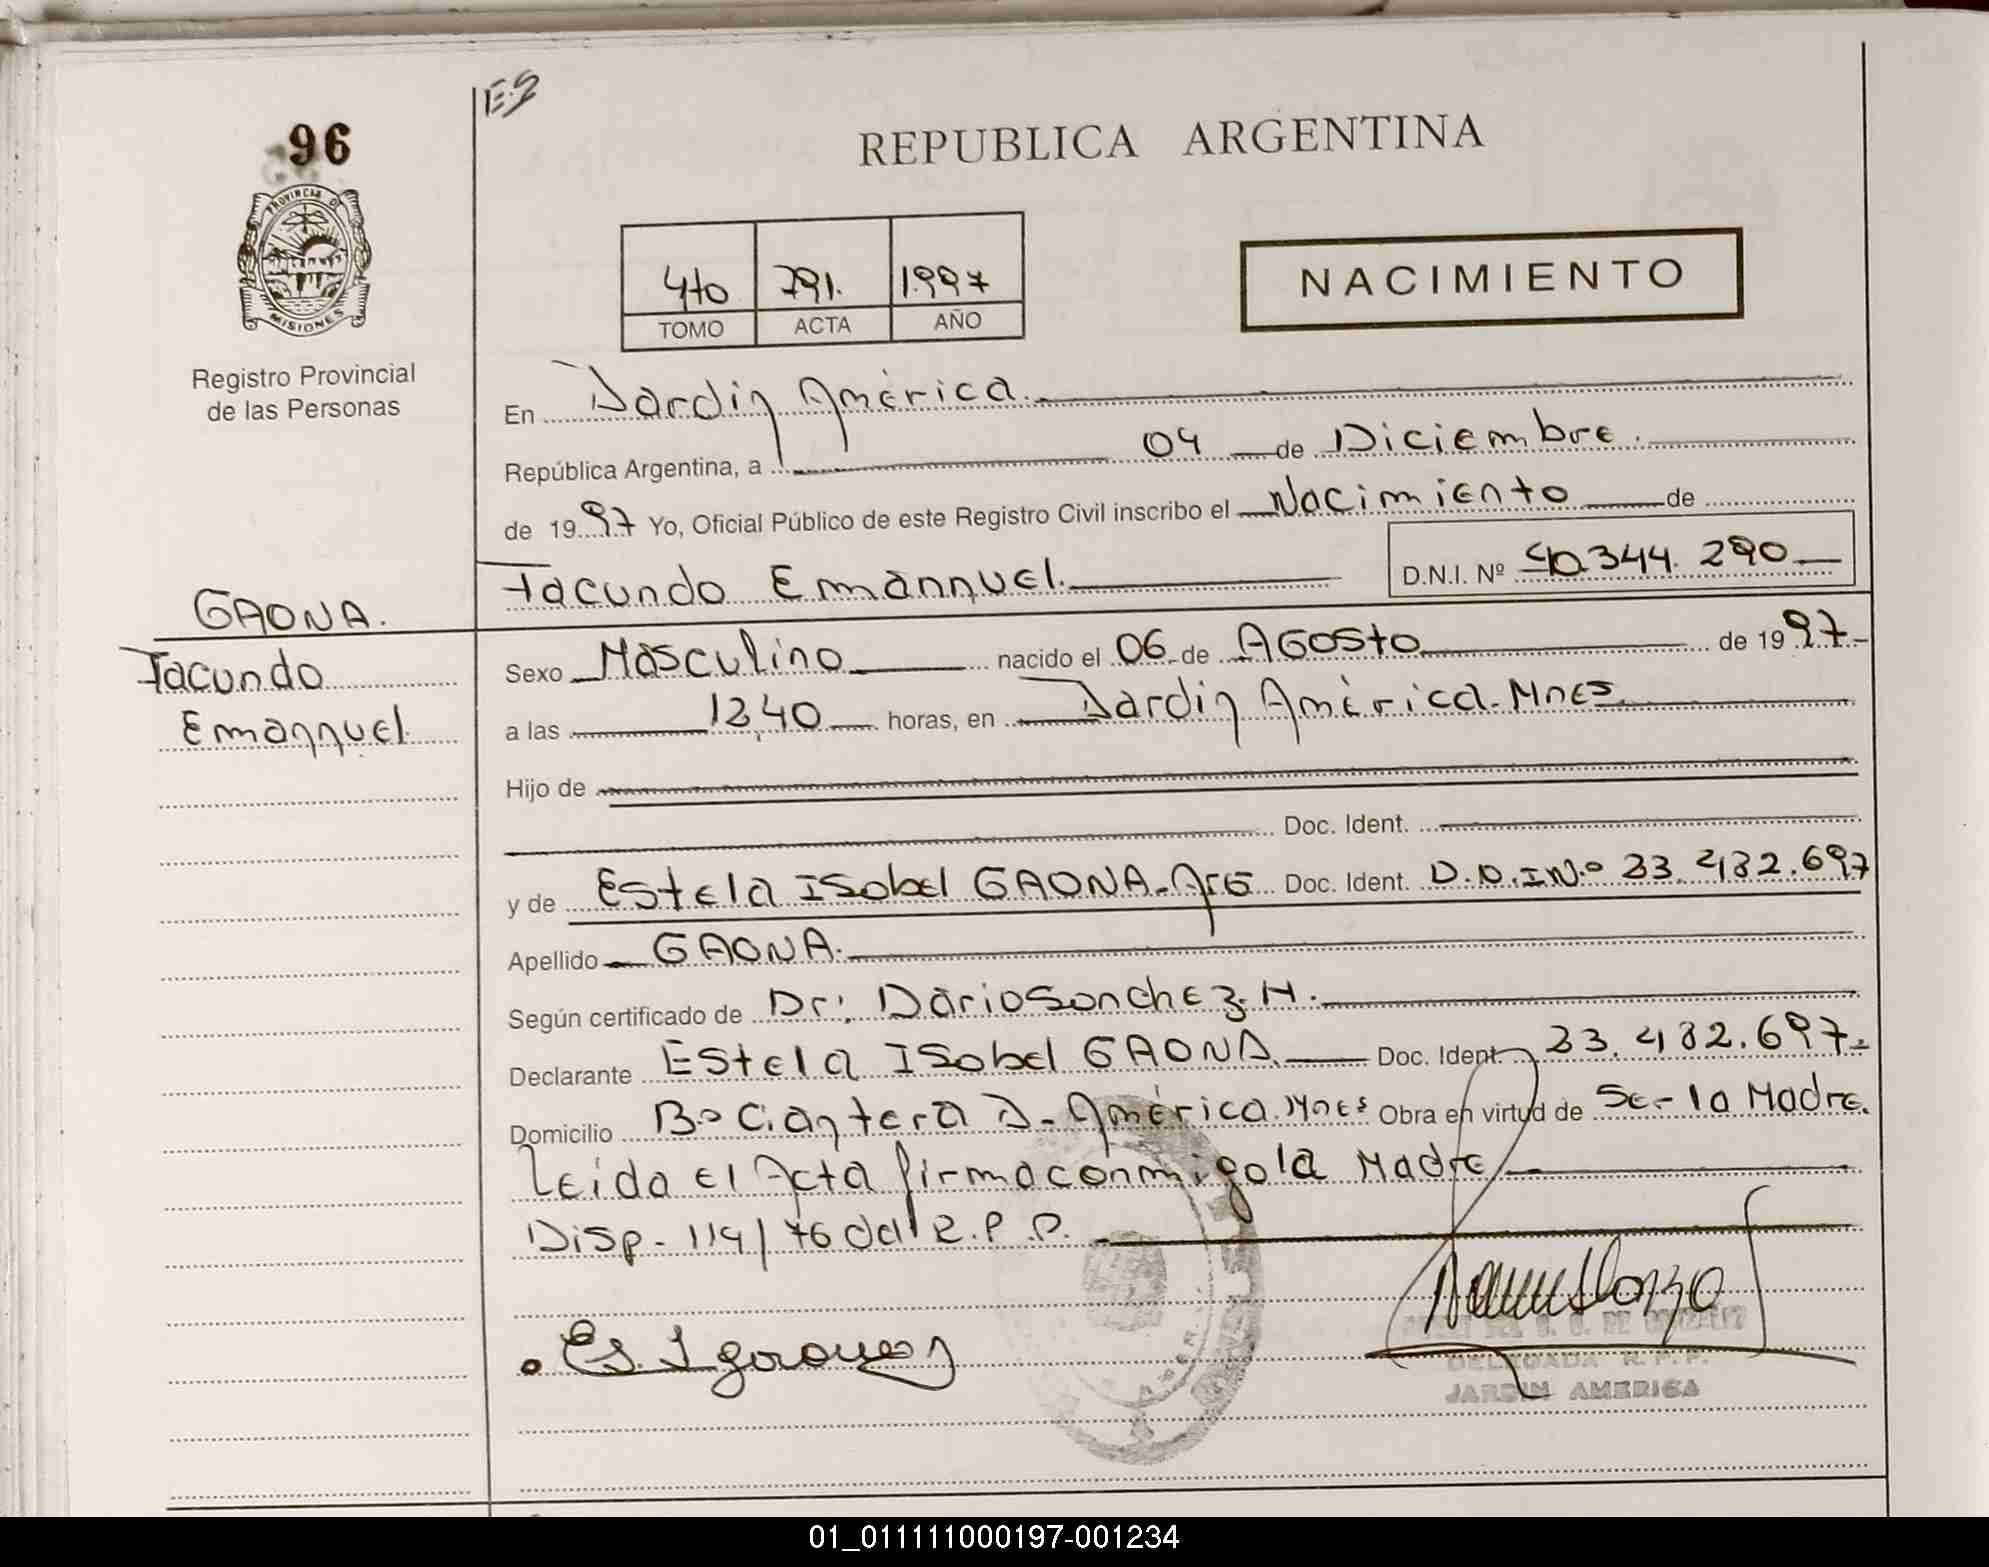 E.2
96
REPUBLICA ARGENTINA
PROVINCIA DE
MISIONES
Registro Provincial
de las Personas
4to 791. 1.997
TOMO ACTA AÑO
NACIMIENTO
En Jardin América.
República Argentina, a 04 de Diciembre.
de 1997 Yo, Oficial Público de este Registro Civil inscribo el Nacimiento de
Facundo Emannuel. D.N.I. Nº 40.344.290
GAONA.
Facundo
Emannuel.
Sexo Masculino nacido el 06 de AGOSTO de 1997.-
a las 12,40 horas, en Jardin América. Mnes.
Hijo de
Doc. Ident.
y de Estela ISabel GAONA. Arg Doc. Ident. D.N.I Nº 23.482.697
Apellido GAONA.
Según certificado de Dr: Dario Sanchez. H.
Declarante Estela ISabel GAONA. Doc. Ident. 23.482.697.-
Domicilio Bº Cantera J. América. Mnes Obra en virtud de Ser la Madre.
Leida el Acta firma conmigo la Madre
Disp. 114/76 del R.P.P.
DELEGADA R.P.P.
JARDIN AMERICA
01_011111000197-001234